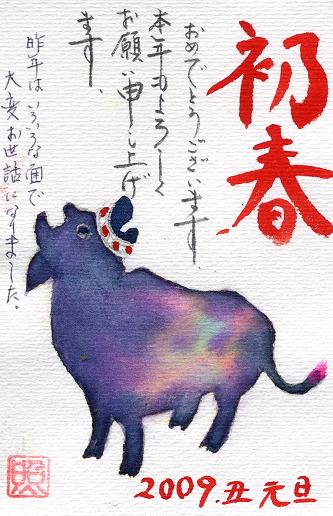 初春
おめでとうございます、
本年もよろしく
お願い申し上げ
ます、
昨年はいろいろな面で
大変お世話になりました。
2009.丑 元旦
照